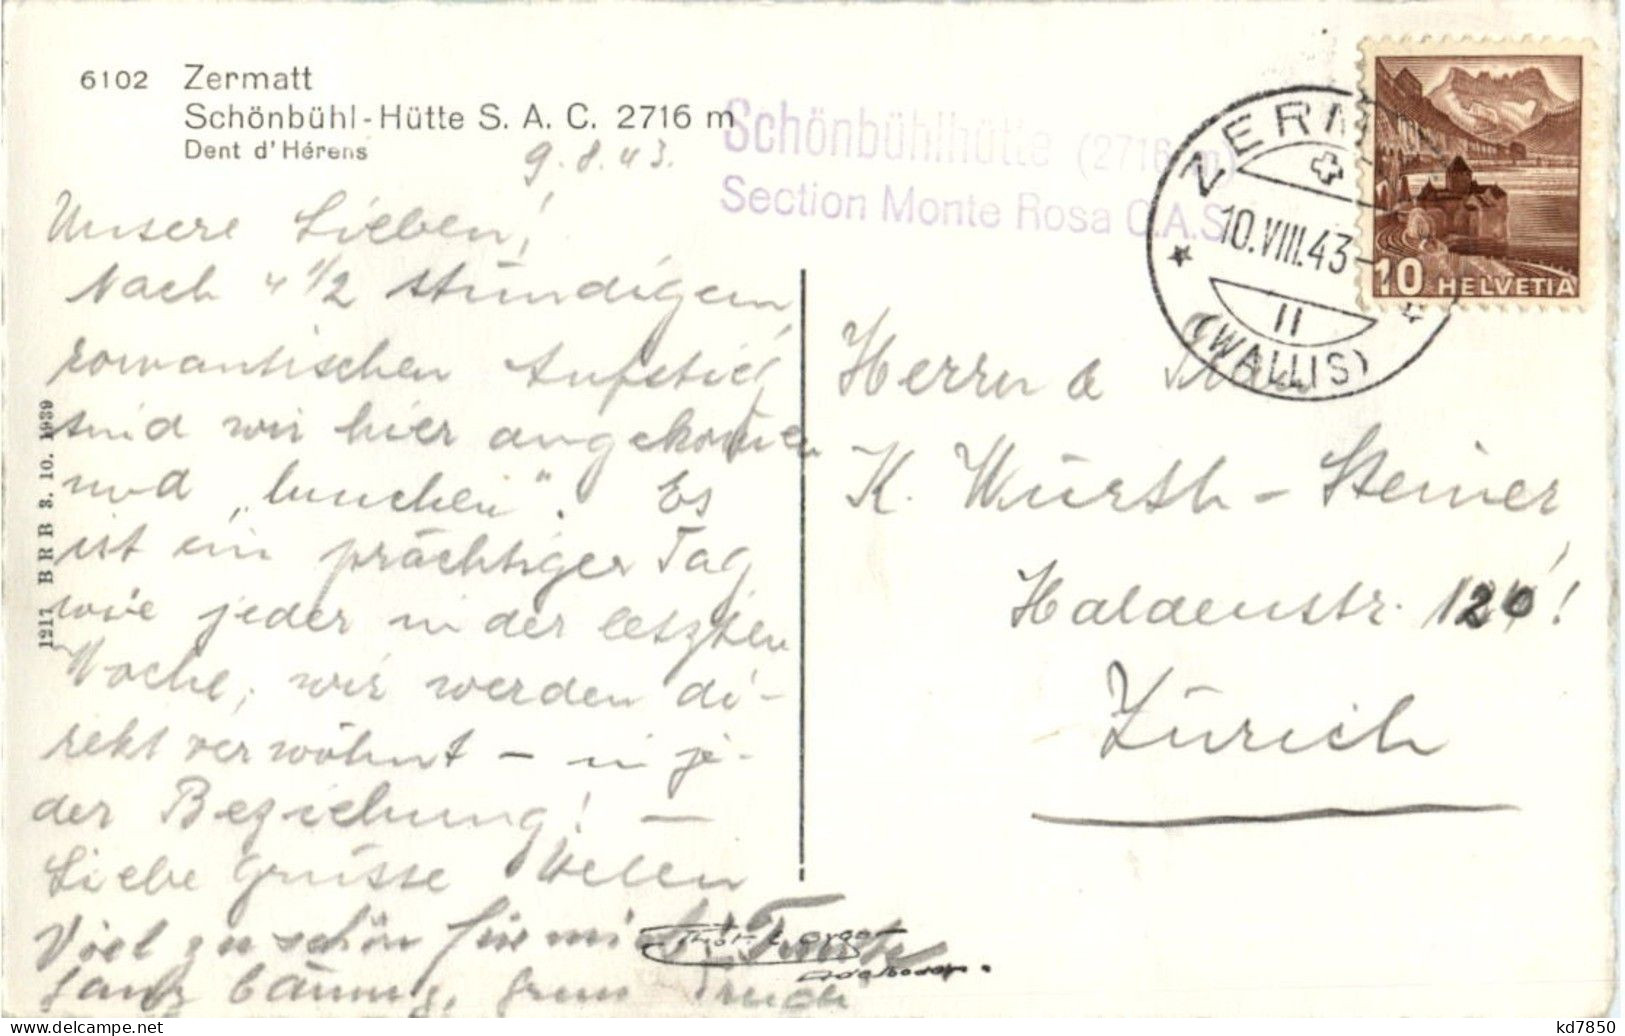 6102 Zermatt
Schönbühl-Hütte S. A. C. 2716 m
Dent d'Hérens
9.8.43.
Schönbühlhütte (2716 m)
Section Monte Rosa C.A.S.
ZERM
10.VIII.43-
II
(WALLIS)
10 HELVETIA
Unsere Lieben!
Nach 4 1/2 stündigem
romantischen Aufstieg
sind wir hier angekommen
und „lunchen". Es
ist ein prächtiger Tag
wie jeder in der letzten
Woche, wir werden di-
rekt verwöhnt – in je-
der Beziehung! –
Liebe Grüsse Helen
Viel zu schön für mich,
Herrn &
K. Würth-Steiner
Haldenstr. 120!
Zürich
1917 BRB 3. 10. 1939
Adelboden.
kd7850